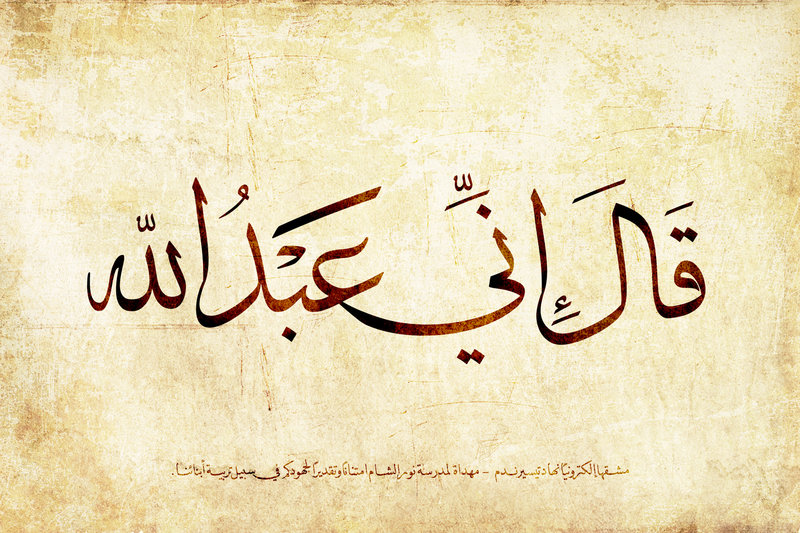 قَالَ إِنِّي عَبْدُ اللّه
مشقها إلكترونيًا نهاد تيسير ندم - مهداة لمدرسة نور الشام امتنانا وتقديرًا لجهودكم في سبيل تربية أبنائنا.